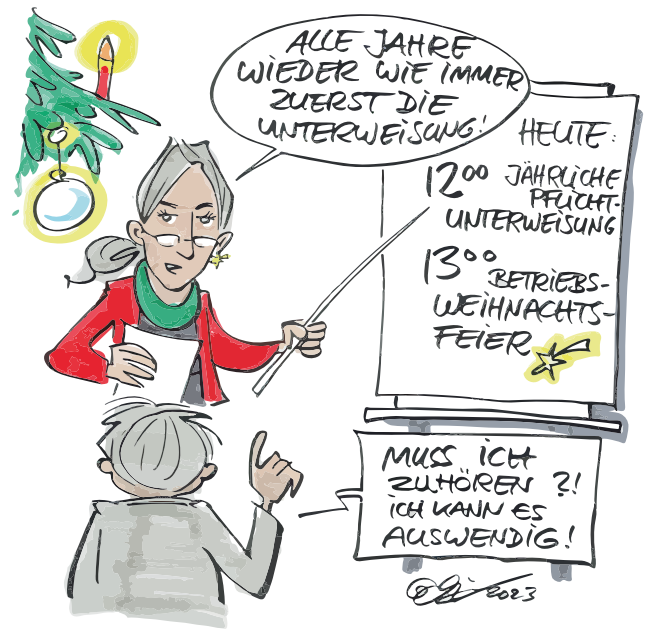 ALLE JAHRE
WIEDER WIE IMMER
ZUERST DIE
UNTERWEISUNG!
HEUTE:
12⁰⁰ JÄHRLICHE
PFLICHT-
UNTERWEISUNG
13⁰⁰ BETRIEBS-
WEIHNACHTS-
FEIER
MUSS ICH
ZUHÖREN ?!
ICH KANN ES
AUSWENDIG!
2023